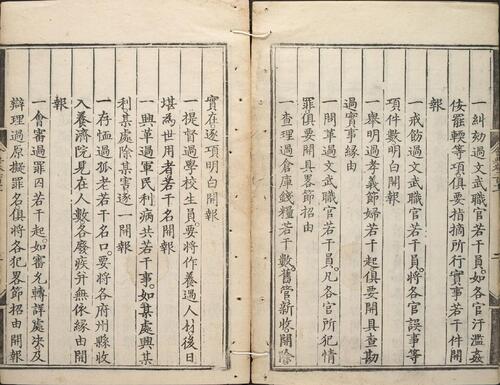 一糾劾過文武職官若干員如各官汙濫姦
佞罷軟等項俱要指摘所行實事若干件開
報
一戒飭過文武職官若干員將各官誤事等
項件數明白開報
一舉明過孝義節婦若干起俱要開具查勘
過實事緣由
一問革過文武職官若干員凡各官所犯情
罪俱要開具畧節招由
一查理過倉庫錢糧若干數舊管新收開除
實在逐項明白開報
一提督過學校生員要將作養過人材後日
堪為世用者若干名開報
一興革過軍民利病共若干事如某處興某
利某處除某害逐一開報
一存恤過孤老若干名口要將各府州縣收
入養濟院見在人數各廢疾并無依緣由開
報
一會審過罪囚若干起如審允轉詳處決及
辯理過原擬罪名俱將各犯畧節招由開報